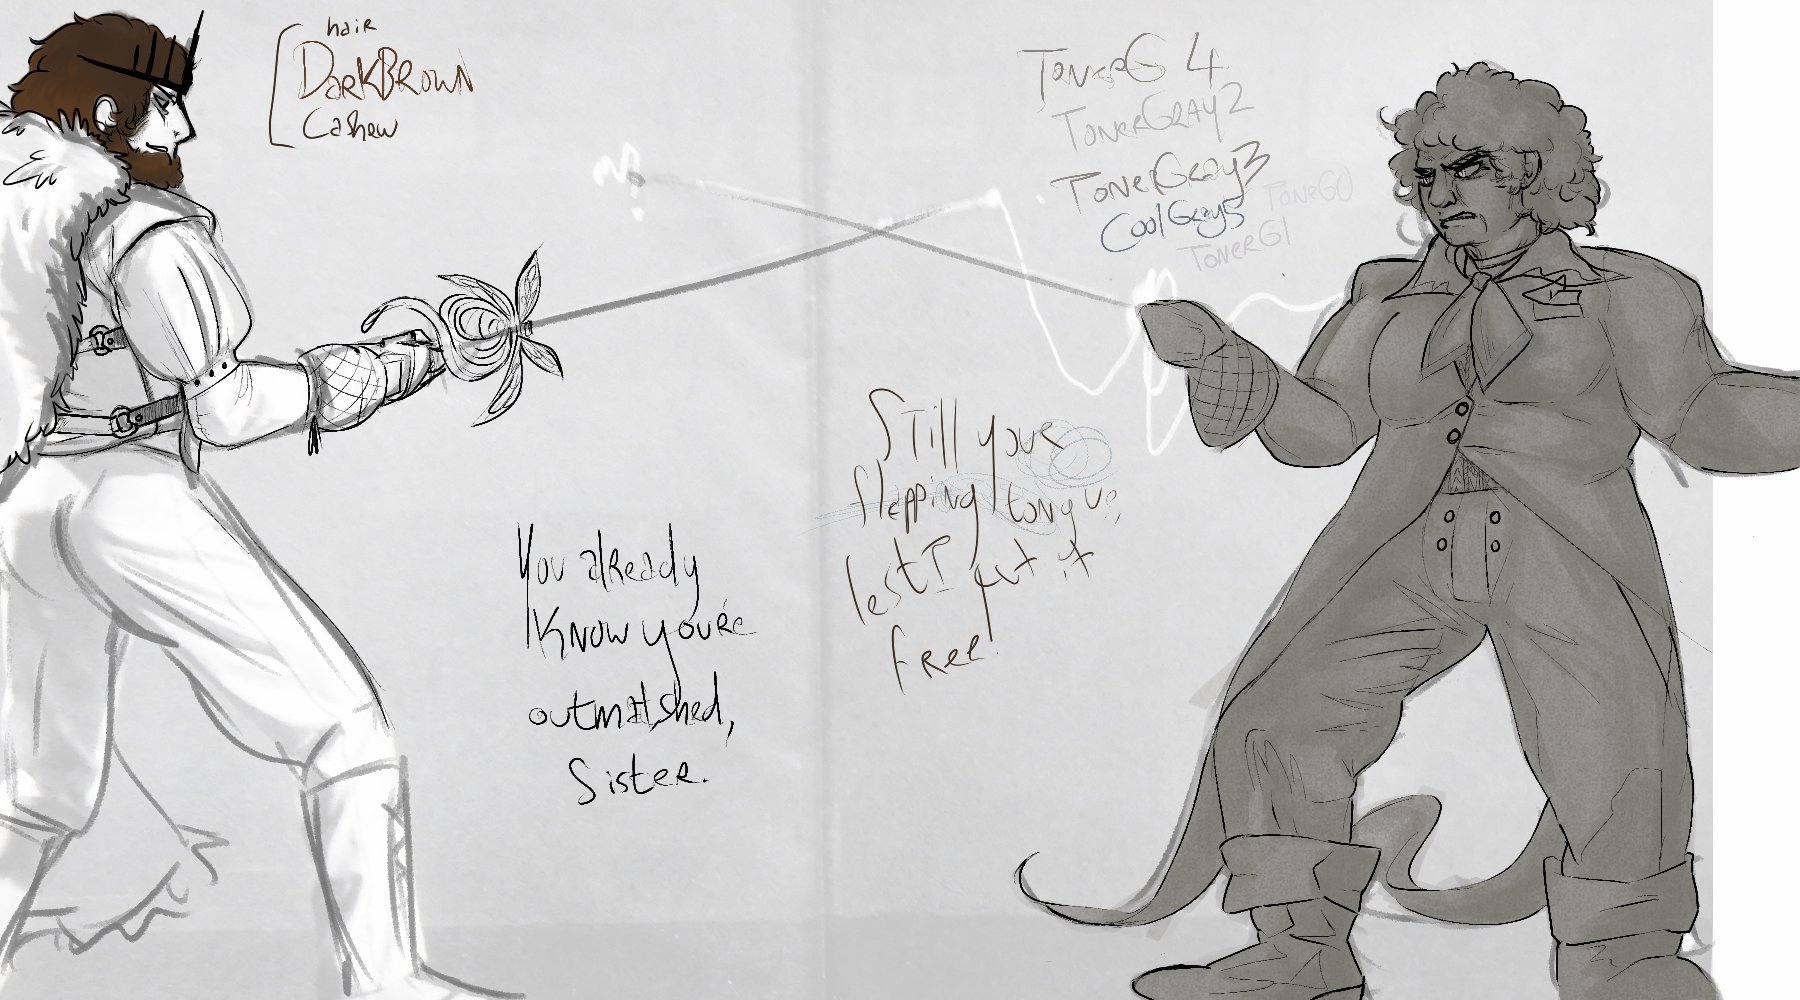 hair
DarkBrown
Cashew
TonerG 4
TonerGray2
TonerGray3
CoolGray5
ToneG0
TonerG1
Still your
flapping tongue,
lest I cut it
free!
You already
Know you're
outmatshed,
Sister.